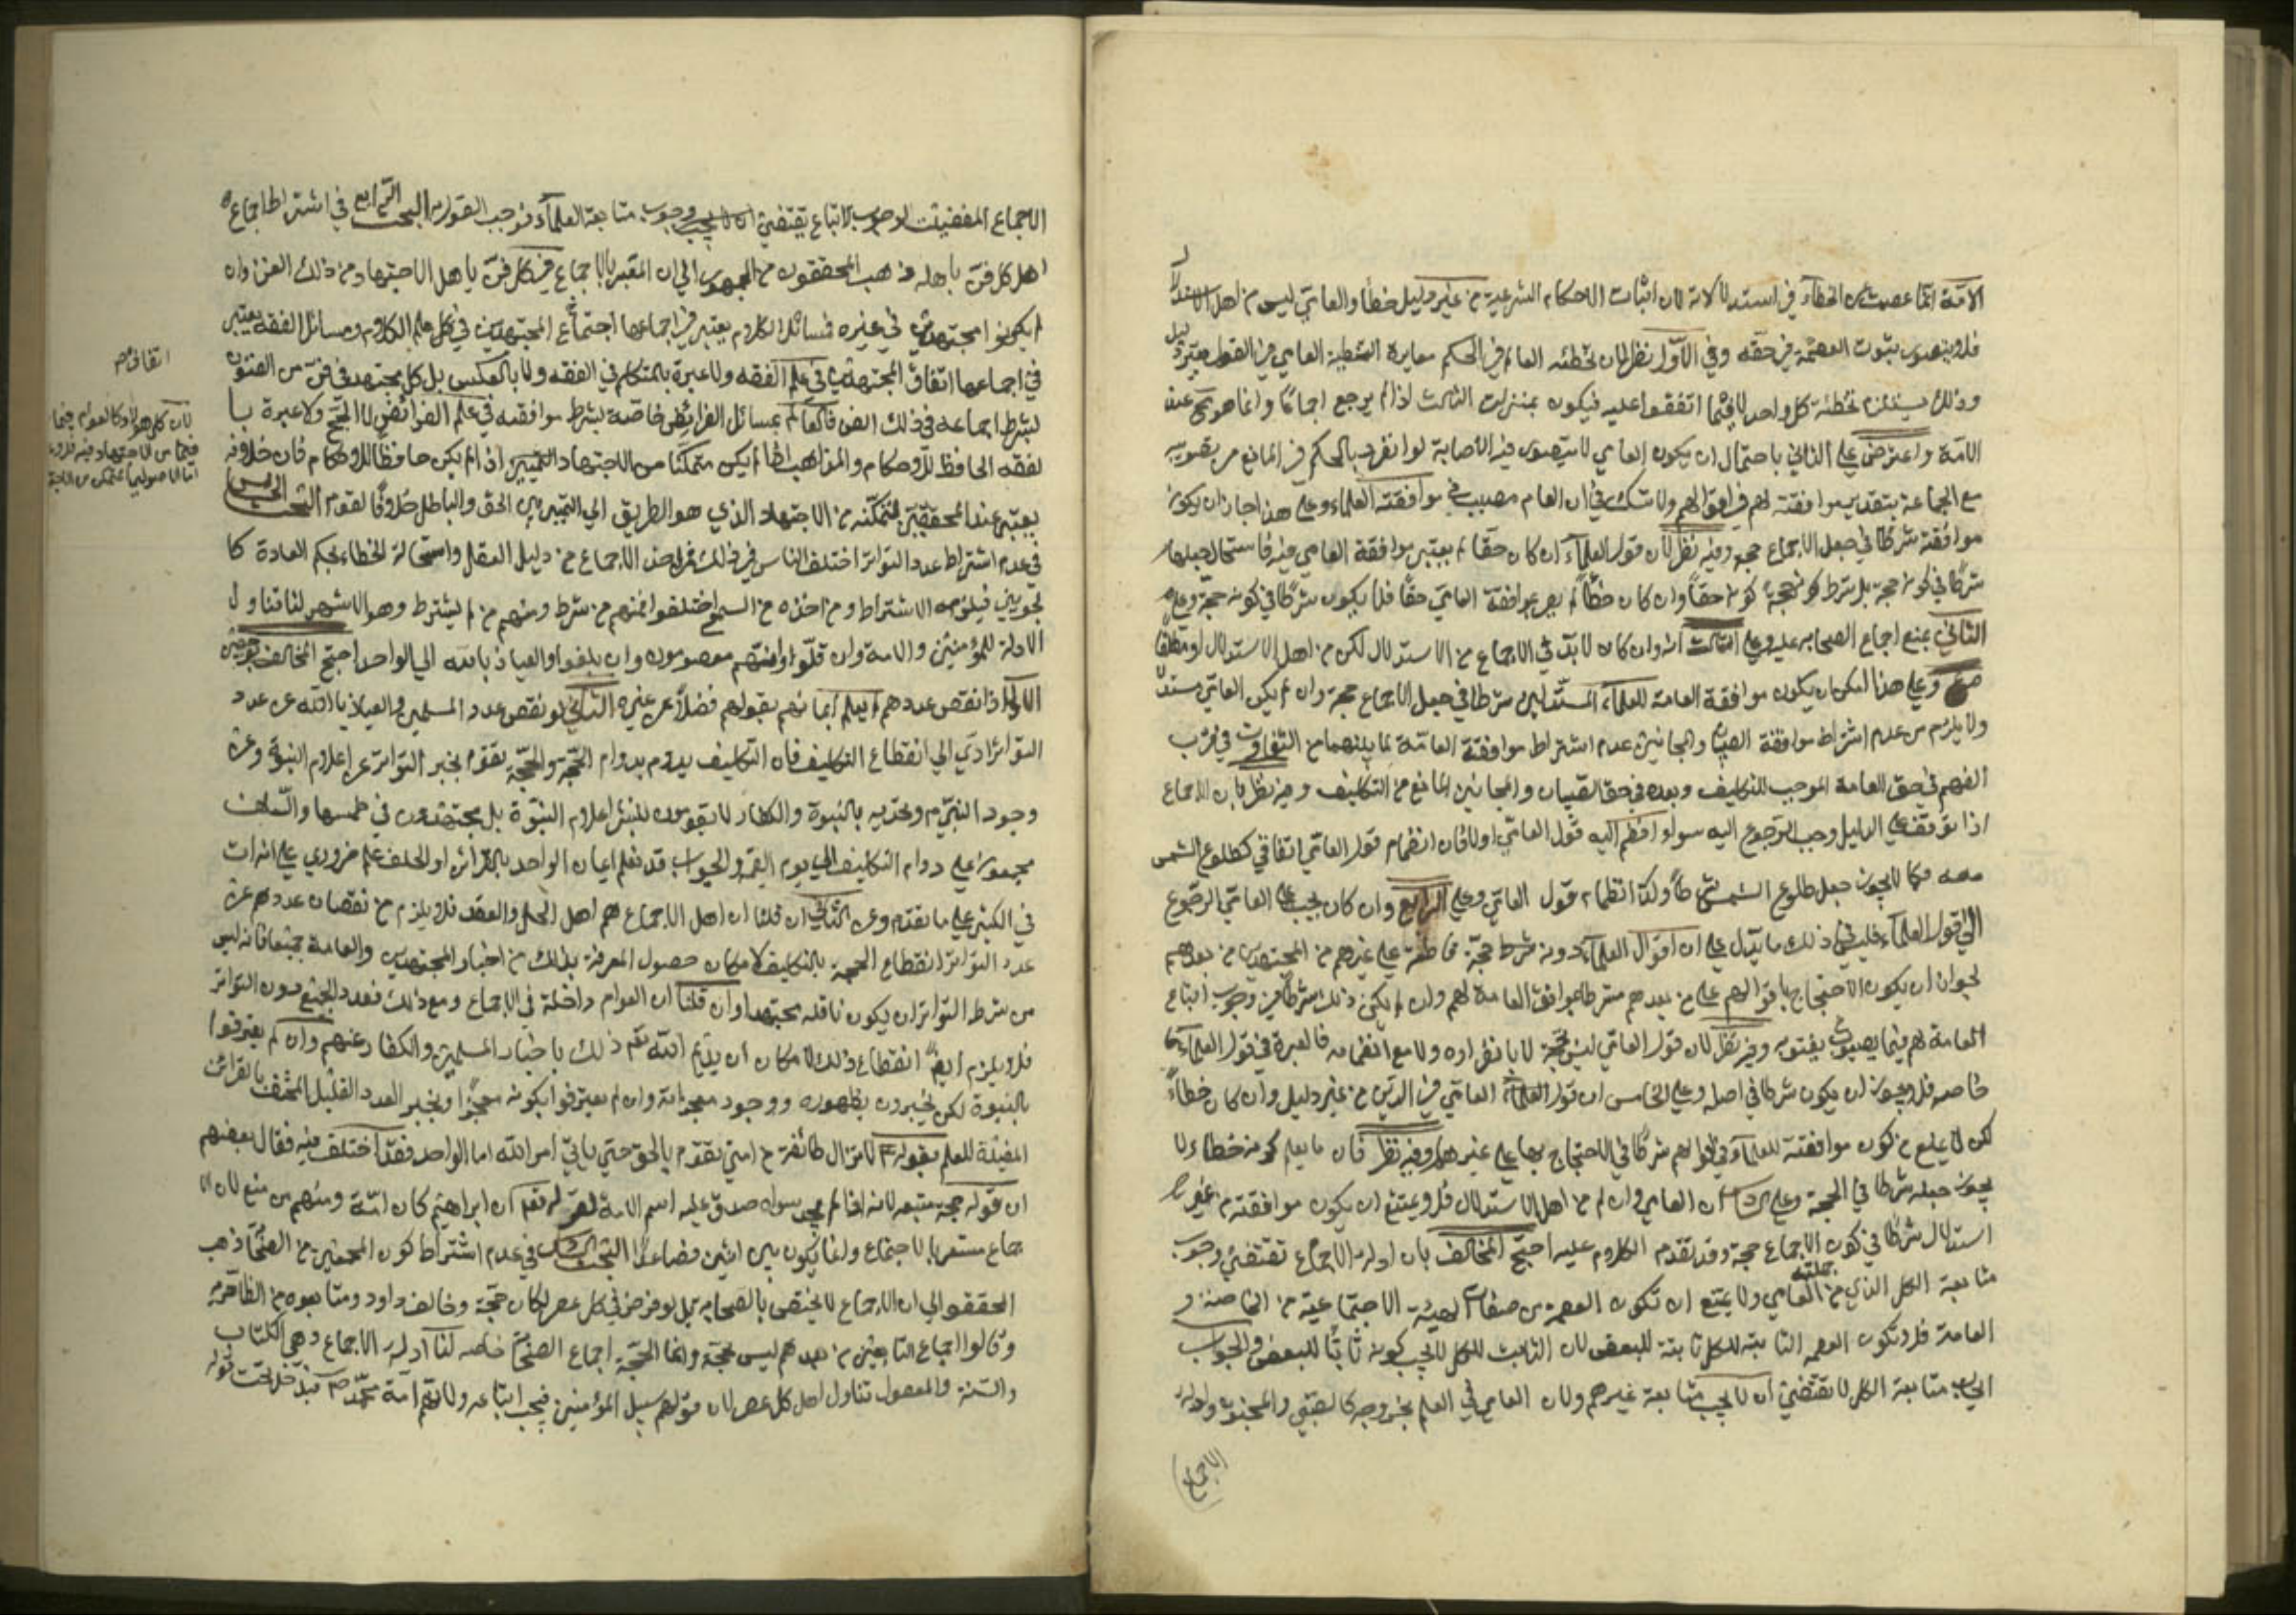 الامة انما عصمت عن الخطاء في استدلالاته لان اثبات الاحكام الشرعية من غير دليل خطأ والعامي ليس من اهل الاستدلال
فلا يتصور ثبوت العصمة في حقه وفي الاول نظر لان تخطئه العالم في الحكم مغايرة لتخطئة العامي في القول بغير دليل
وذلك يستلزم تخطئة كل واحد لا فيما اتفقوا عليه فيكون بمنزلة الثالث اذا لم يرجع اجماعا وانما هو بحث عنه
الامة واعترض على الثاني باحتمال ان يكون العامي لا يتصور فيه الاصابة لو انفرد بالحكم في المانع من تصويبه
مع الجماعة بتقدير موافقته لهم في اقوالهم ولا شك في ان العام مصيب في موافقته العلماء وعلى هذا جاز ان يكون
موافقته شرطا في جعل الاجماع حجة وفيه نظر لان قول العلماء ان كان حقا لم يعتبر موافقة العامي فيه فاستحال جعلها
شرطا في كونه حجة بل شرط كونه حجة كونه حقا وان كان خطأ لم يصر بموافقة العامي حقا فلا يكون شرطا في كونه حجة وعلى
الثاني بمنع اجماع الصحابه عليه وعلى الثالث انه وان كان لا بد في الاجماع من الاستدلال لكن من اهل الاستدلال او مطلقا
وعلى هذا امكن ان يكون موافقة العامة للعلماء المستدلين شرطا في جعل الاجماع حجة وان لم يكن العامي مستدلا
ولا يلزم من عدم اشتراط موافقة الصبيان والمجانين عدم اشتراط موافقة العامة لما بينهما من التفاوت في قرب
الفهم في حق العامة الموجب للتكليف وبعده في حق الصبيان والمجانين المانع من التكليف وفيه نظر فان الاجماع
اذا توقف على الدليل وجب الرجوع اليه سواء انضم اليه قول العامي اولا فان انضمام قول العامي اتفاقي كطلوع الشمس
معه فكما لا يجوز جعل طلوع الشمس شرطا وكذا انضمام قول العامي وعلى الرابع وان كان يجب على العامي الرجوع
الى قول العلماء فليس في ذلك ما يدل على ان اقوال العلماء دونه شرط حجة قاطعة على غيرهم من المجتهدين من بعدهم
لجواز ان يكون الاحتجاج باقوالهم على من بعدهم مشترطا بموافقة العامة لهم وان لم يكن ذلك شرطا في وجوب اتباع
العامة لهم فيما يفتون به وفيه نظر لان قول العامي ليس بحجة لا بانفراده ولا مع انضمامه فالعبرة في قول العلماء
خاصه فلا يجوز ان يكون شرطا في اصله وعلى الخامس ان قول العامي في الدين من غير دليل وان كان خطأ
لكن لا يمنع من كون موافقته للعلماء في اقوالهم شرطا في الاحتجاج بها على غيرهم وفيه نظر فان ما يعلم كونه خطاء لا
يجوز جعله شرطا في الحجة وعلى السادس ان العامي وان لم من اهل الاستدلال فلا يمتنع ان يكون موافقته من غير
استدلال شرطا في كون الاجماع حجة وقد تقدم الكلام عليه احتج المخالف بان ادلة الاجماع تقتضي وجوب
متابعة الكل الذي من جملته العامي ولا يمتنع ان تكون العصمة من صفات الهيئة الاجتماعية من الخاصة و
العامة فلا تكون العصمة الثابتة للكل ثابتة للبعض لان الثابت للكل لا يجب كونه ثابتا للبعض والجواب
ايجاب متابعة الكل لا يقتضي ان لا يجب متابعة غيرهم ولان العامي في العلم بخروجه كالصبي والمجنون وادلة
(الاجماع)
الاجماع المقتضية لوجوب الاتباع يقتضي وجوب متابعة العلماء فوجب القول به البحث الرابع في اشتراط اجماع
اهل كل فن باهله ذهب المحققون من الجمهور الى ان المعتبر بالاجماع في كل فن باهل الاجتهاد من ذلك الفن وان
لم يكونوا مجتهدين في غيره فمسائل الكلام يعتبر في اجماعها اجتماع المجتهدين في علم الكلام ومسائل الفقه يعتبر
في اجماعها اتفاق المجتهدين في علم الفقه ولا عبرة بالمتكلم في الفقه ولا بالعكس بل كل مجتهد في فن من الفنون
يشترط اجماعه في ذلك الفن فالعالم بمسائل الفرائض خاصة يشترط موافقته في علم الفرائض لا الحج ولا عبرة با
لفقه الحافظ للاحكام والمذاهب اذا لم يكن متمكنا من الاجتهاد اذ لم يكن حافظا للاحكام فان خلافه
يعتبر عند المحققين لتمكنه من الاجتهاد الذي هو الطريق الى التمييز بين الحق والباطل خلافا لقوم البحث الخامس
في عدم اشتراط عدد التواتر اختلف الناس في ذلك فمن اخذ الاجماع من دليل العقل واستحالة الخطاء بحكم العادة كا
لجويني فيلزمه الاشتراط ومن اخذه من السمع اختلفوا فمنهم من شرط ومنهم من لم يشترط وهو الاشهر لنا تناول
الادلة للمؤمنين والامة وان قلوا وانهم معصومون وان بلغوا والعياذ بالله الى الواحد احتج المخالف بوجهين
الاول اذا نقص عددهم لم يعلم ايمانهم بقولهم فضلا عن غيره الثاني لو نقص عدد المسلمين والعياذ بالله عن عدد
التواتر ادى الى انقطاع التكليف فان التكليف يدوم بدوام الحجة والحجة تقوم بخبر التواتر عن اعلام النبوة وعن
وجود النبي وتحديه بالنبوة والكفار لا يقومون بنشر اعلام النبوة بل يجتهدون في طمسها والسلف
مجمعون على دوام التكليف الى يوم القيمة والجواب قد نعلم ايمان الواحد بالقرائن او الخلف علم ضروري على انه ات
في الكثير على ما تقدم وعن الثاني ان قلنا ان اهل الاجماع هم اهل الحل والعقد فلا يلزم من نقصان عددهم عن
عدد التواتر انقطاع الحجة بالتكليف لامكان حصول المعرفة بذلك من اخبار المجتهدين والعامة جميعا فانه ليس
من شرط التواتر ان يكون ناقله مجتهدا وان قلنا ان العوام داخلة في الاجماع ومع ذلك فعدد الجميع دون التواتر
فلا يلزم ايضا انقطاع ذلك لامكان ان يديم الله تعم ذلك باخبار المسلمين والكفار عنهم وان لم يعترفوا
بالنبوة لكن يخبرون بظهوره ووجود معجزاته وان لم يعترفوا بكونه معجزا وبخبر العدد القليل المحتف بالقرائن
المفيدة للعلم بقوله لا تزال طائفة من امتي تقوم بالحق حتى ياتي امر الله اما الواحد فقد اختلف فيه فقال بعضهم
ان قوله حجة متبعه لانه اذا لم يوجد سواه صدق عليه اسم الامة لقوله تعم ان ابراهيم كان امة ومنهم من منع لان الا
جماع مشعر بالاجتماع وانما يكون بين اثنين فصاعدا البحث السادس في عدم اشتراط كون المجمعين من الصحابة ذهب
المحققون الى ان الاجماع لا يختص بالصحابه بل لو فرض في كل عصر لكان حجة وخالف داود ومتابعوه من الظاهرية
وقالوا اجماع التابعين من بعدهم ليس بحجة وانما الحجة اجماع الصحابة خاصه لنا ادلة الاجماع وهي الكتاب
والسنة والمعقول تناول اهل كل عصر لان قولهم سبيل المؤمنين فيجب اتباعه ولانهم امة محمد ص فيدخل تحت قوله
اتفاقهم
لان كل هؤلاء كالعوام فيما